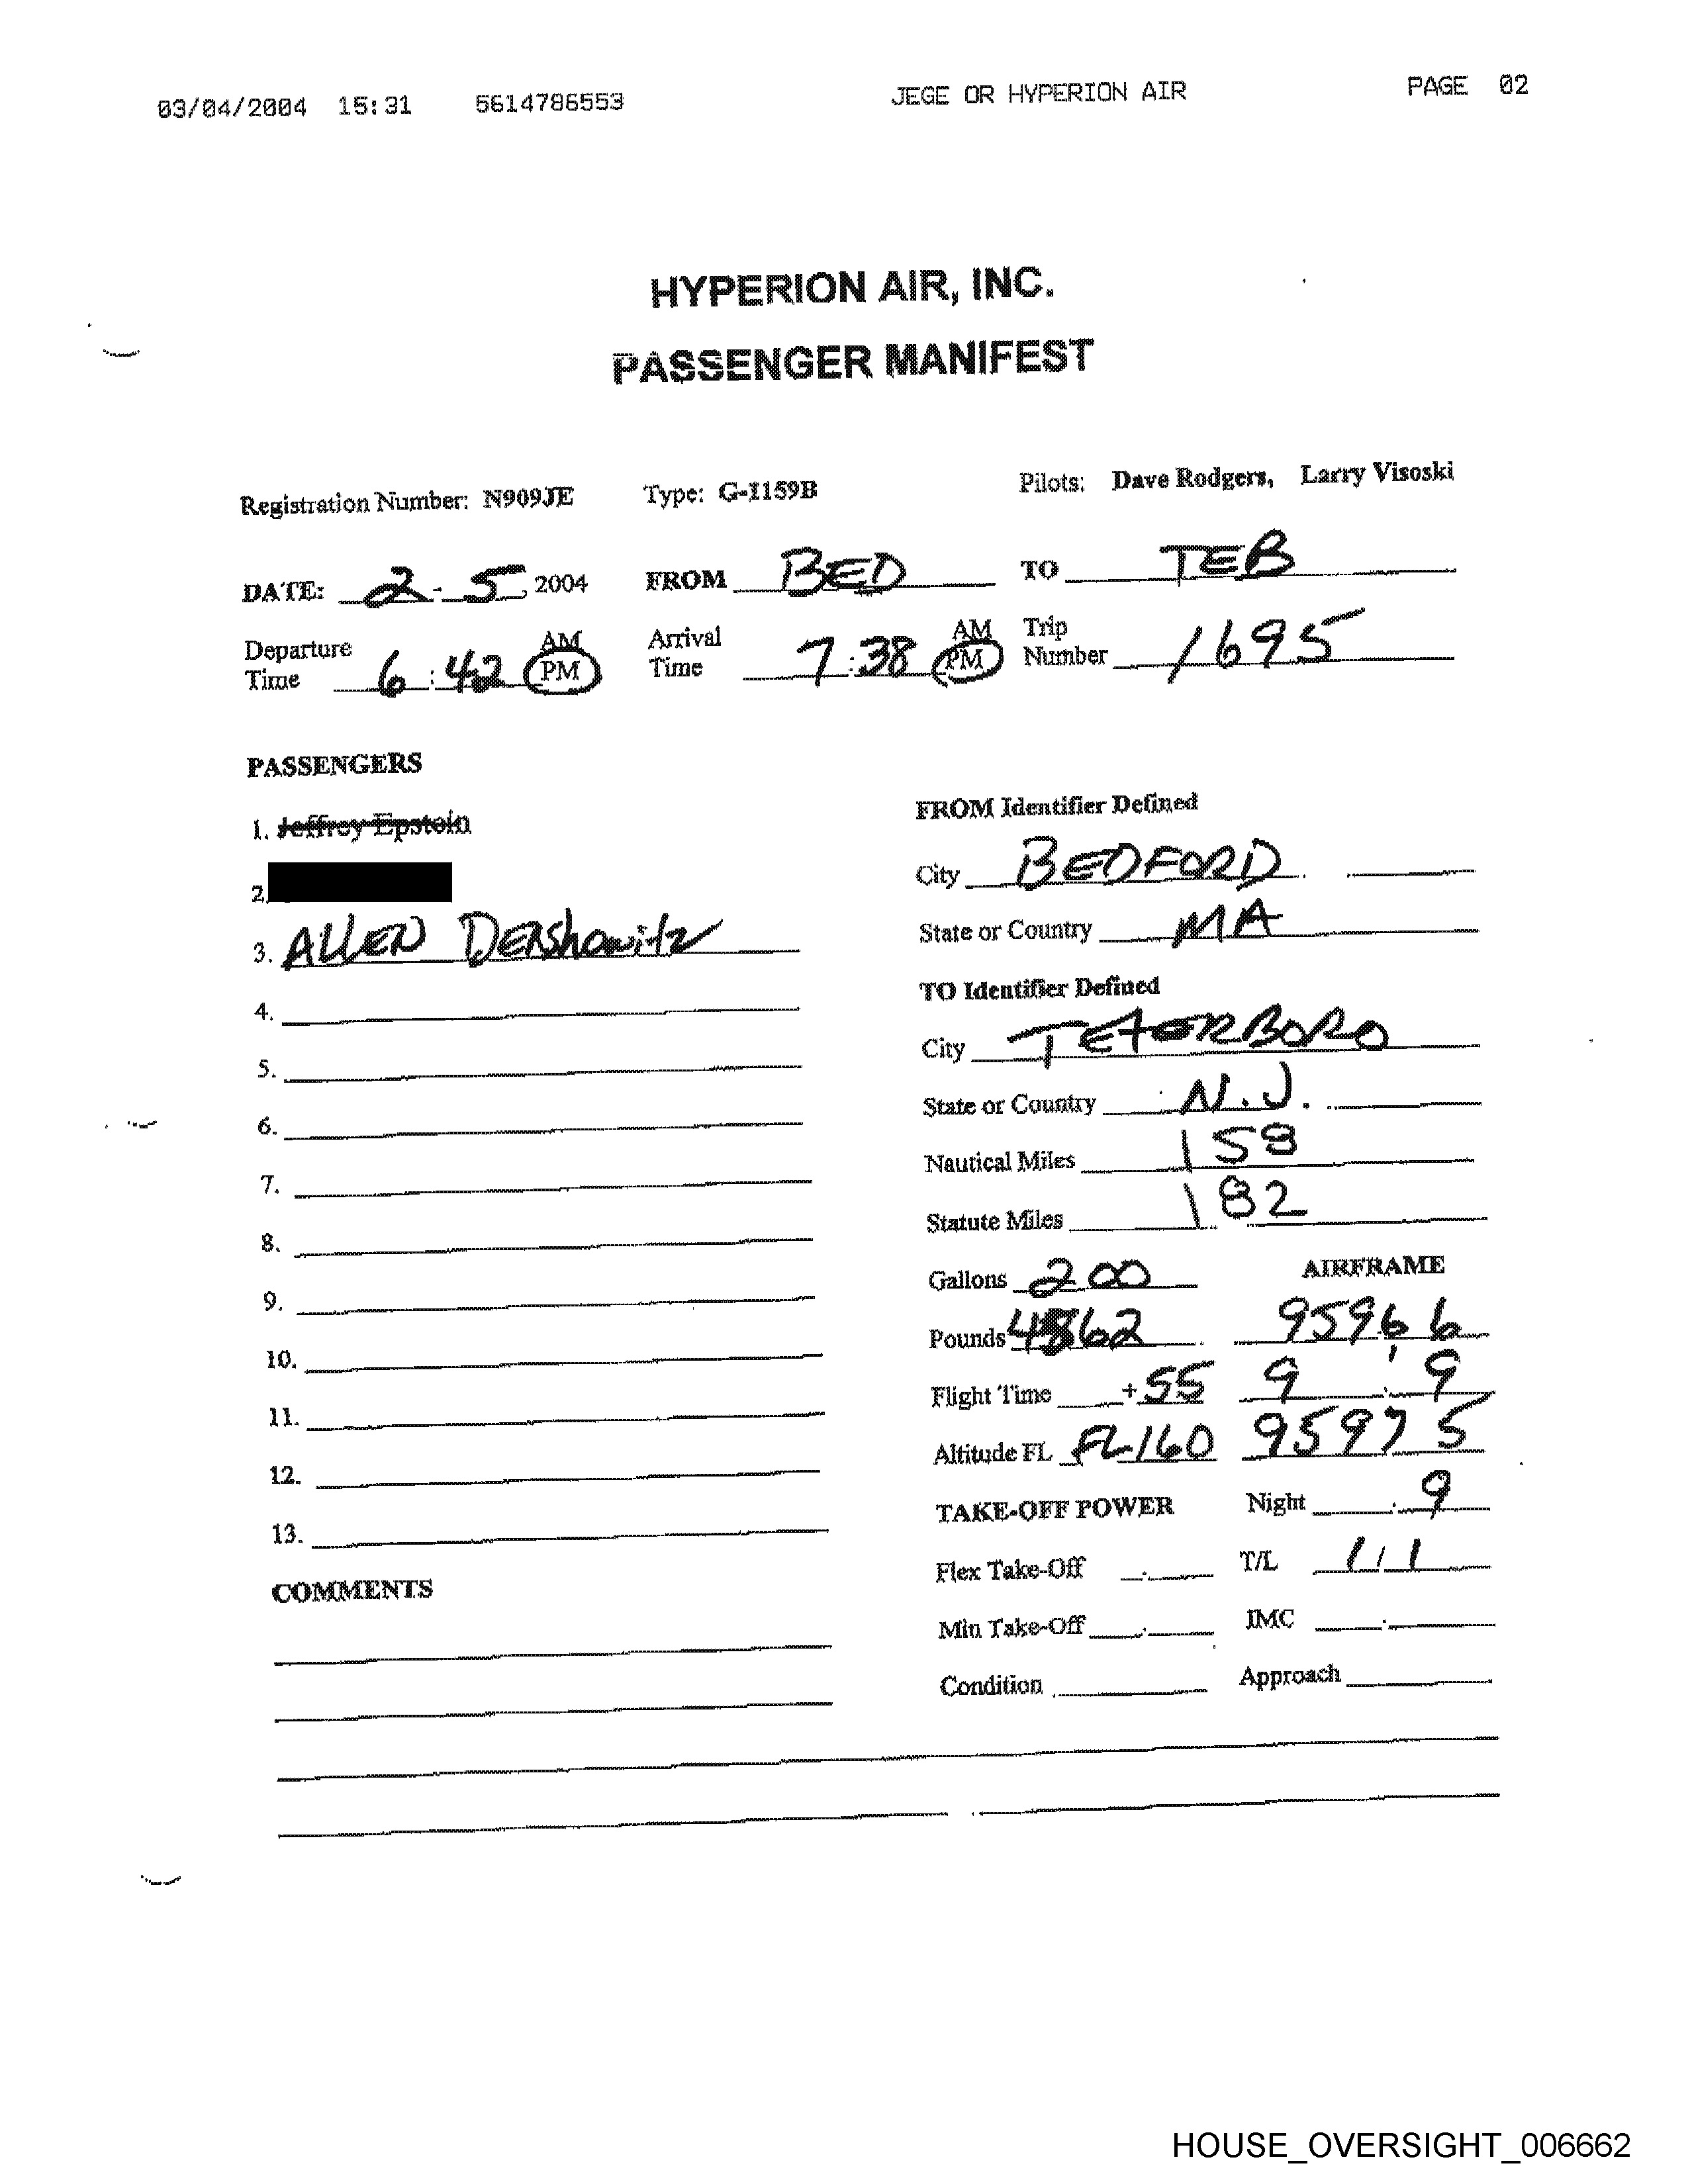 03/04/2004 15:31 5614786553 JEGE OR HYPERION AIR PAGE 02
HYPERION AIR, INC.
PASSENGER MANIFEST
Registration Number: N909JE Type: G-1159B Pilots: Dave Rodgers, Larry Visoski
DATE: 2-5, 2004 FROM BED TO TEB
Departure Time 6:42 AM PM Arrival Time 7:38 AM PM Trip Number 1695
PASSENGERS
1. Jeffrey Epstein
2.
3. ALLEN DERShowitz
4.
5.
6.
7.
8.
9.
10.
11.
12.
13.
COMMENTS
FROM Identifier Defined
City BEDFORD
State or Country MA
TO Identifier Defined
City TETERBORO
State or Country N.J.
Nautical Miles 158
Statute Miles 182
Gallons 200 AIRFRAME
Pounds 9596 6
Flight Time +55 9 . 9
Altitude FL FL160 9597 5
TAKE-OFF POWER Night .9
Flex Take-Off T/L 1/1
Min Take-Off IMC
Condition Approach
HOUSE_OVERSIGHT_006662